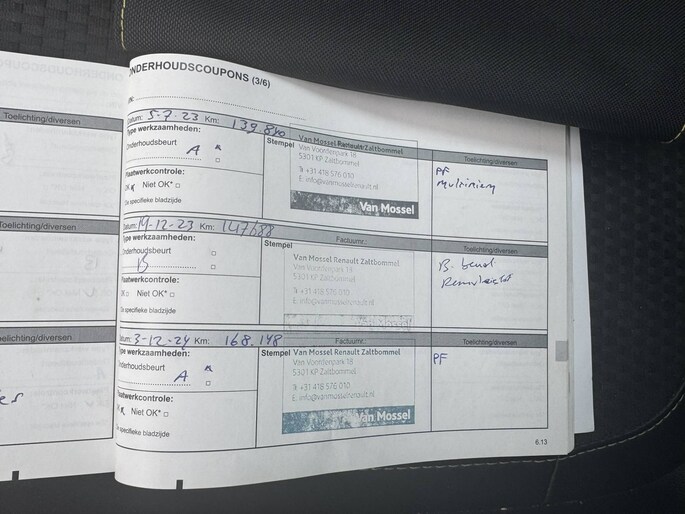 ONDERHOUDSCOUPONS (3/6)
Toelichting/diversen
Datum: 5-7-23 Km: 139 840
Type werkzaamheden:
Onderhoudsbeurt
A
Plaatwerkcontrole:
OK Niet OK* □
Zie specifieke bladzijde
Stempel
Van Mossel Renault Zaltbommel
Van Voordenpark 18
5301 KP Zaltbommel
T: +31 418 576 010
E: info@vanmosselrenault.nl
Van Mossel
Toelichting/diversen
PF
Toelichting/diversen
Datum: 19-12-23 Km: 147688
Type werkzaamheden:
Onderhoudsbeurt □
B □
Plaatwerkcontrole:
OK □ Niet OK* □
Zie specifieke bladzijde
Stempel
Factuurnr.:
Van Mossel Renault Zaltbommel
Van Voordenpark 18
5301 KP Zaltbommel
T: +31 418 576 010
E: info@vanmosselrenault.nl
Toelichting/diversen
B. beurt
Remvloeistof
Toelichting/diversen
Datum: 3-12-24 Km: 168.148
Type werkzaamheden:
Onderhoudsbeurt
A □
Plaatwerkcontrole:
OK Niet OK* □
Zie specifieke bladzijde
Stempel
Factuurnr.:
Van Mossel Renault Zaltbommel
Van Voordenpark 18
5301 KP Zaltbommel
T: +31 418 576 010
E: info@vanmosselrenault.nl
Van Mossel
Toelichting/diversen
PF
6.13